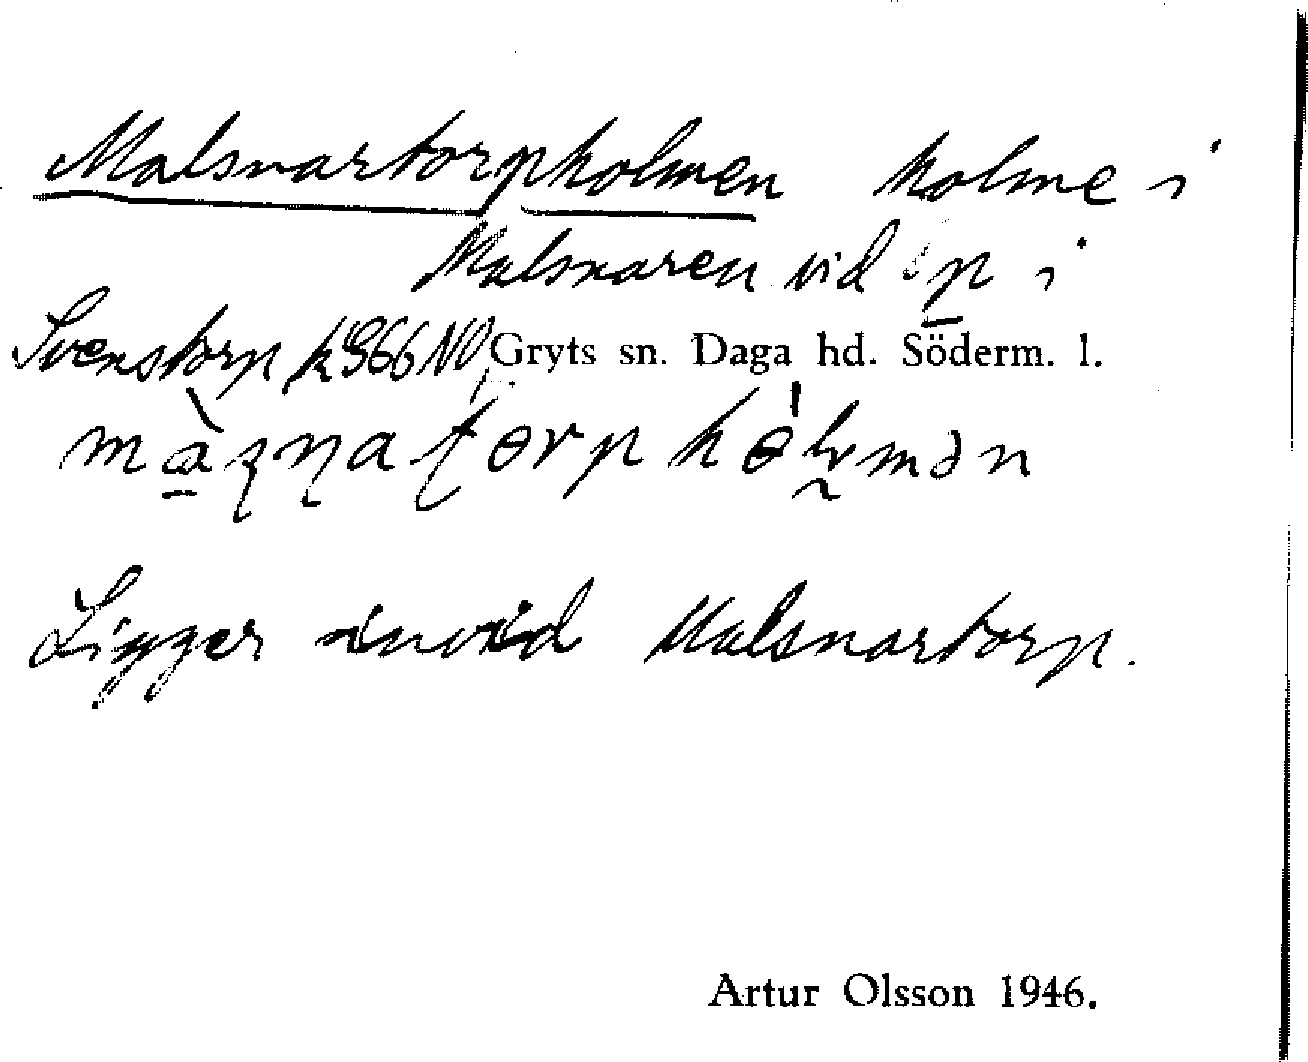 Malsnartorpholmen holme i
Malsnaren vid p i
Svenstorp k966NO Gryts sn. Daga hd. Söderm. l.
Ligger invid Malsnartorp.
Artur Olsson 1946.